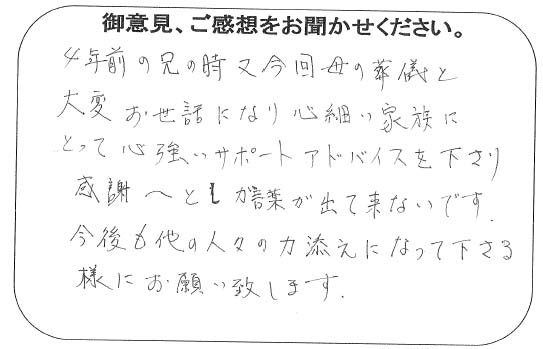 御意見、ご感想をお聞かせください。
4年前の兄の時又今回母の葬儀と
大変お世話になり心細い家族に
とって心強いサポートアドバイスを下さり
感謝へとしか言葉が出て来ないです.
今後も他の人々の力添えになって下さる
様にお願い致します.